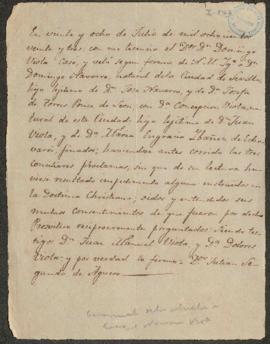 En veinte y ocho de Julio de mil ochocientos
veinte y tres: con mi licencia el Dor. Dn. Domingo
Viota Casó, y veló segun forma de N. M. Yga. a Dn.
Domingo Navarro, natural dela Ciudad de Sevilla
hijo legitimo de Dn. Jose Navarro, y de Da. Josefa
de Torres Ponce de Leon, con Da. Concepcion Viota, na
tural de esta Ciudad hija legitima de Dn. Juan
Viota, y de Da. Maria Ibañez de
finados; haviendose antes corrido las tres
conciliares proclamas, sin que de su lectura hu-
viese resultado impedimento alguno instruidos en
la Doctrina Christiana; oidos y entendidos sus
mutuos consentimientos de que fueron por dicho
Presvitero reciprocamente preguntados. Siendo tes-
tigos Dn. Juan Manuel Viota, y Da. Dolores
Viota: y por verdad lo firmo. Dr. Julian Se-
gundo de Agüero